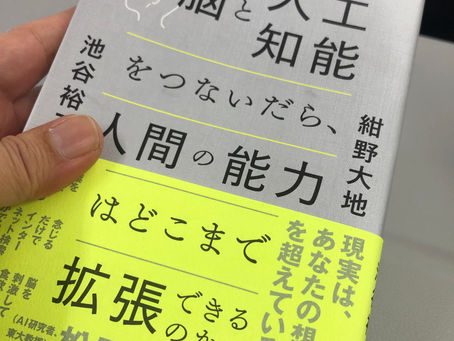 脳と人工
知能
をつないだら、
人間の能力
はどこまで
拡張できる
のか
紺野大地
池谷裕
現実は、
あなたの想
を超えてい
念じる
だけで
インター
ネット検索
脳を
刺激して
食欲
(AI研究者、
東大教授